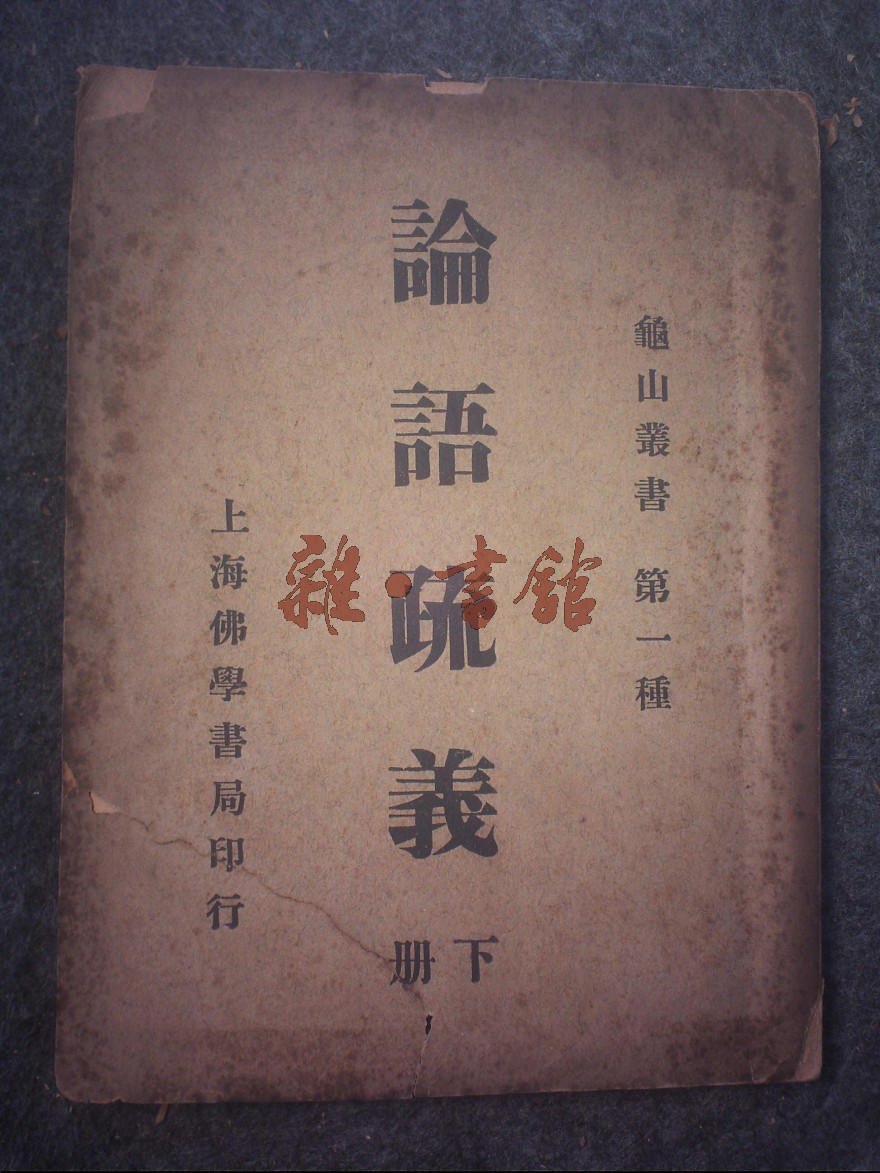 龜山叢書 第一種
論語疏義
下册
上海佛學書局印行
雜·書館